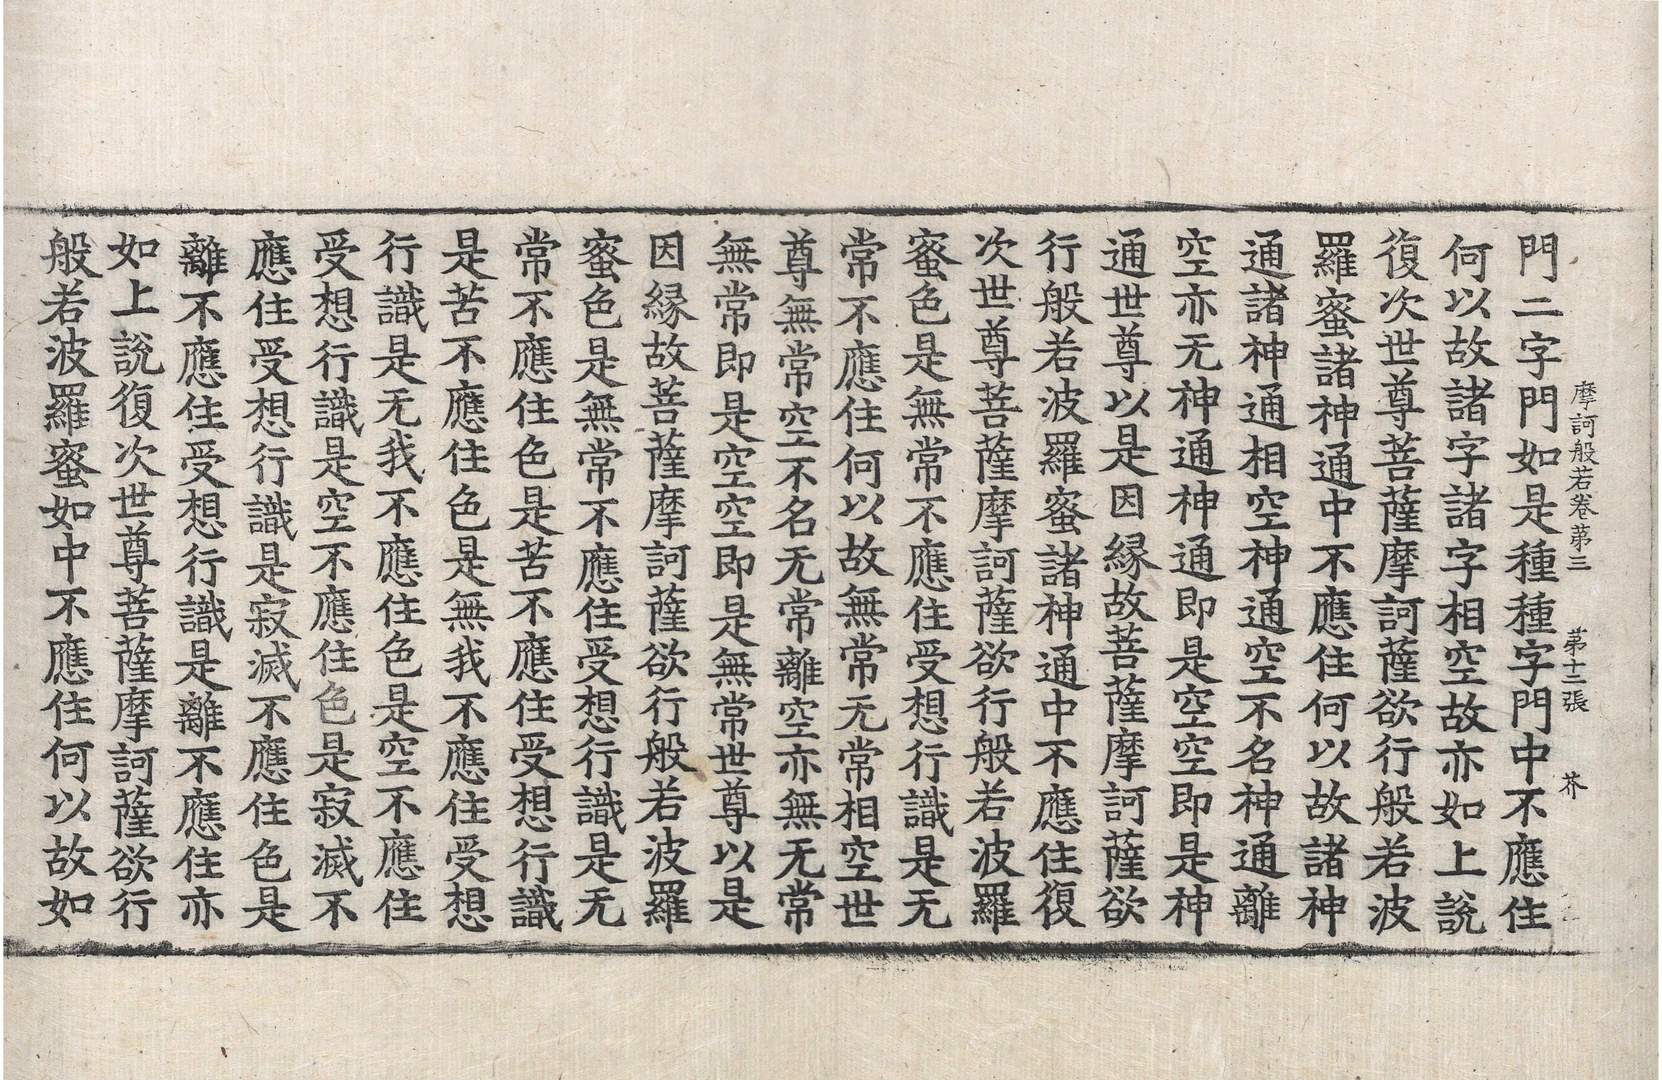 摩訶般若卷第三　第十二張　芥
門二字門如是種種字門中不應住
何以故諸字諸字相空故亦如上說
復次世尊菩薩摩訶薩欲行般若波
羅蜜諸神通中不應住何以故諸神
通諸神通相空神通空不名神通離
空亦无神通神通即是空空即是神
通世尊以是因緣故菩薩摩訶薩欲
行般若波羅蜜諸神通中不應住復
次世尊菩薩摩訶薩欲行般若波羅
蜜色是無常不應住受想行識是无
常不應住何以故無常无常相空世
尊無常空不名无常離空亦無无常
無常即是空空即是無常世尊以是
因緣故菩薩摩訶薩欲行般若波羅
蜜色是無常不應住受想行識是无
常不應住色是苦不應住受想行識
是苦不應住色是無我不應住受想
行識是无我不應住色是空不應住
受想行識是空不應住色是寂滅不
應住受想行識是寂滅不應住色是
離不應住受想行識是離不應住亦
如上說復次世尊菩薩摩訶薩欲行
般若波羅蜜如中不應住何以故如